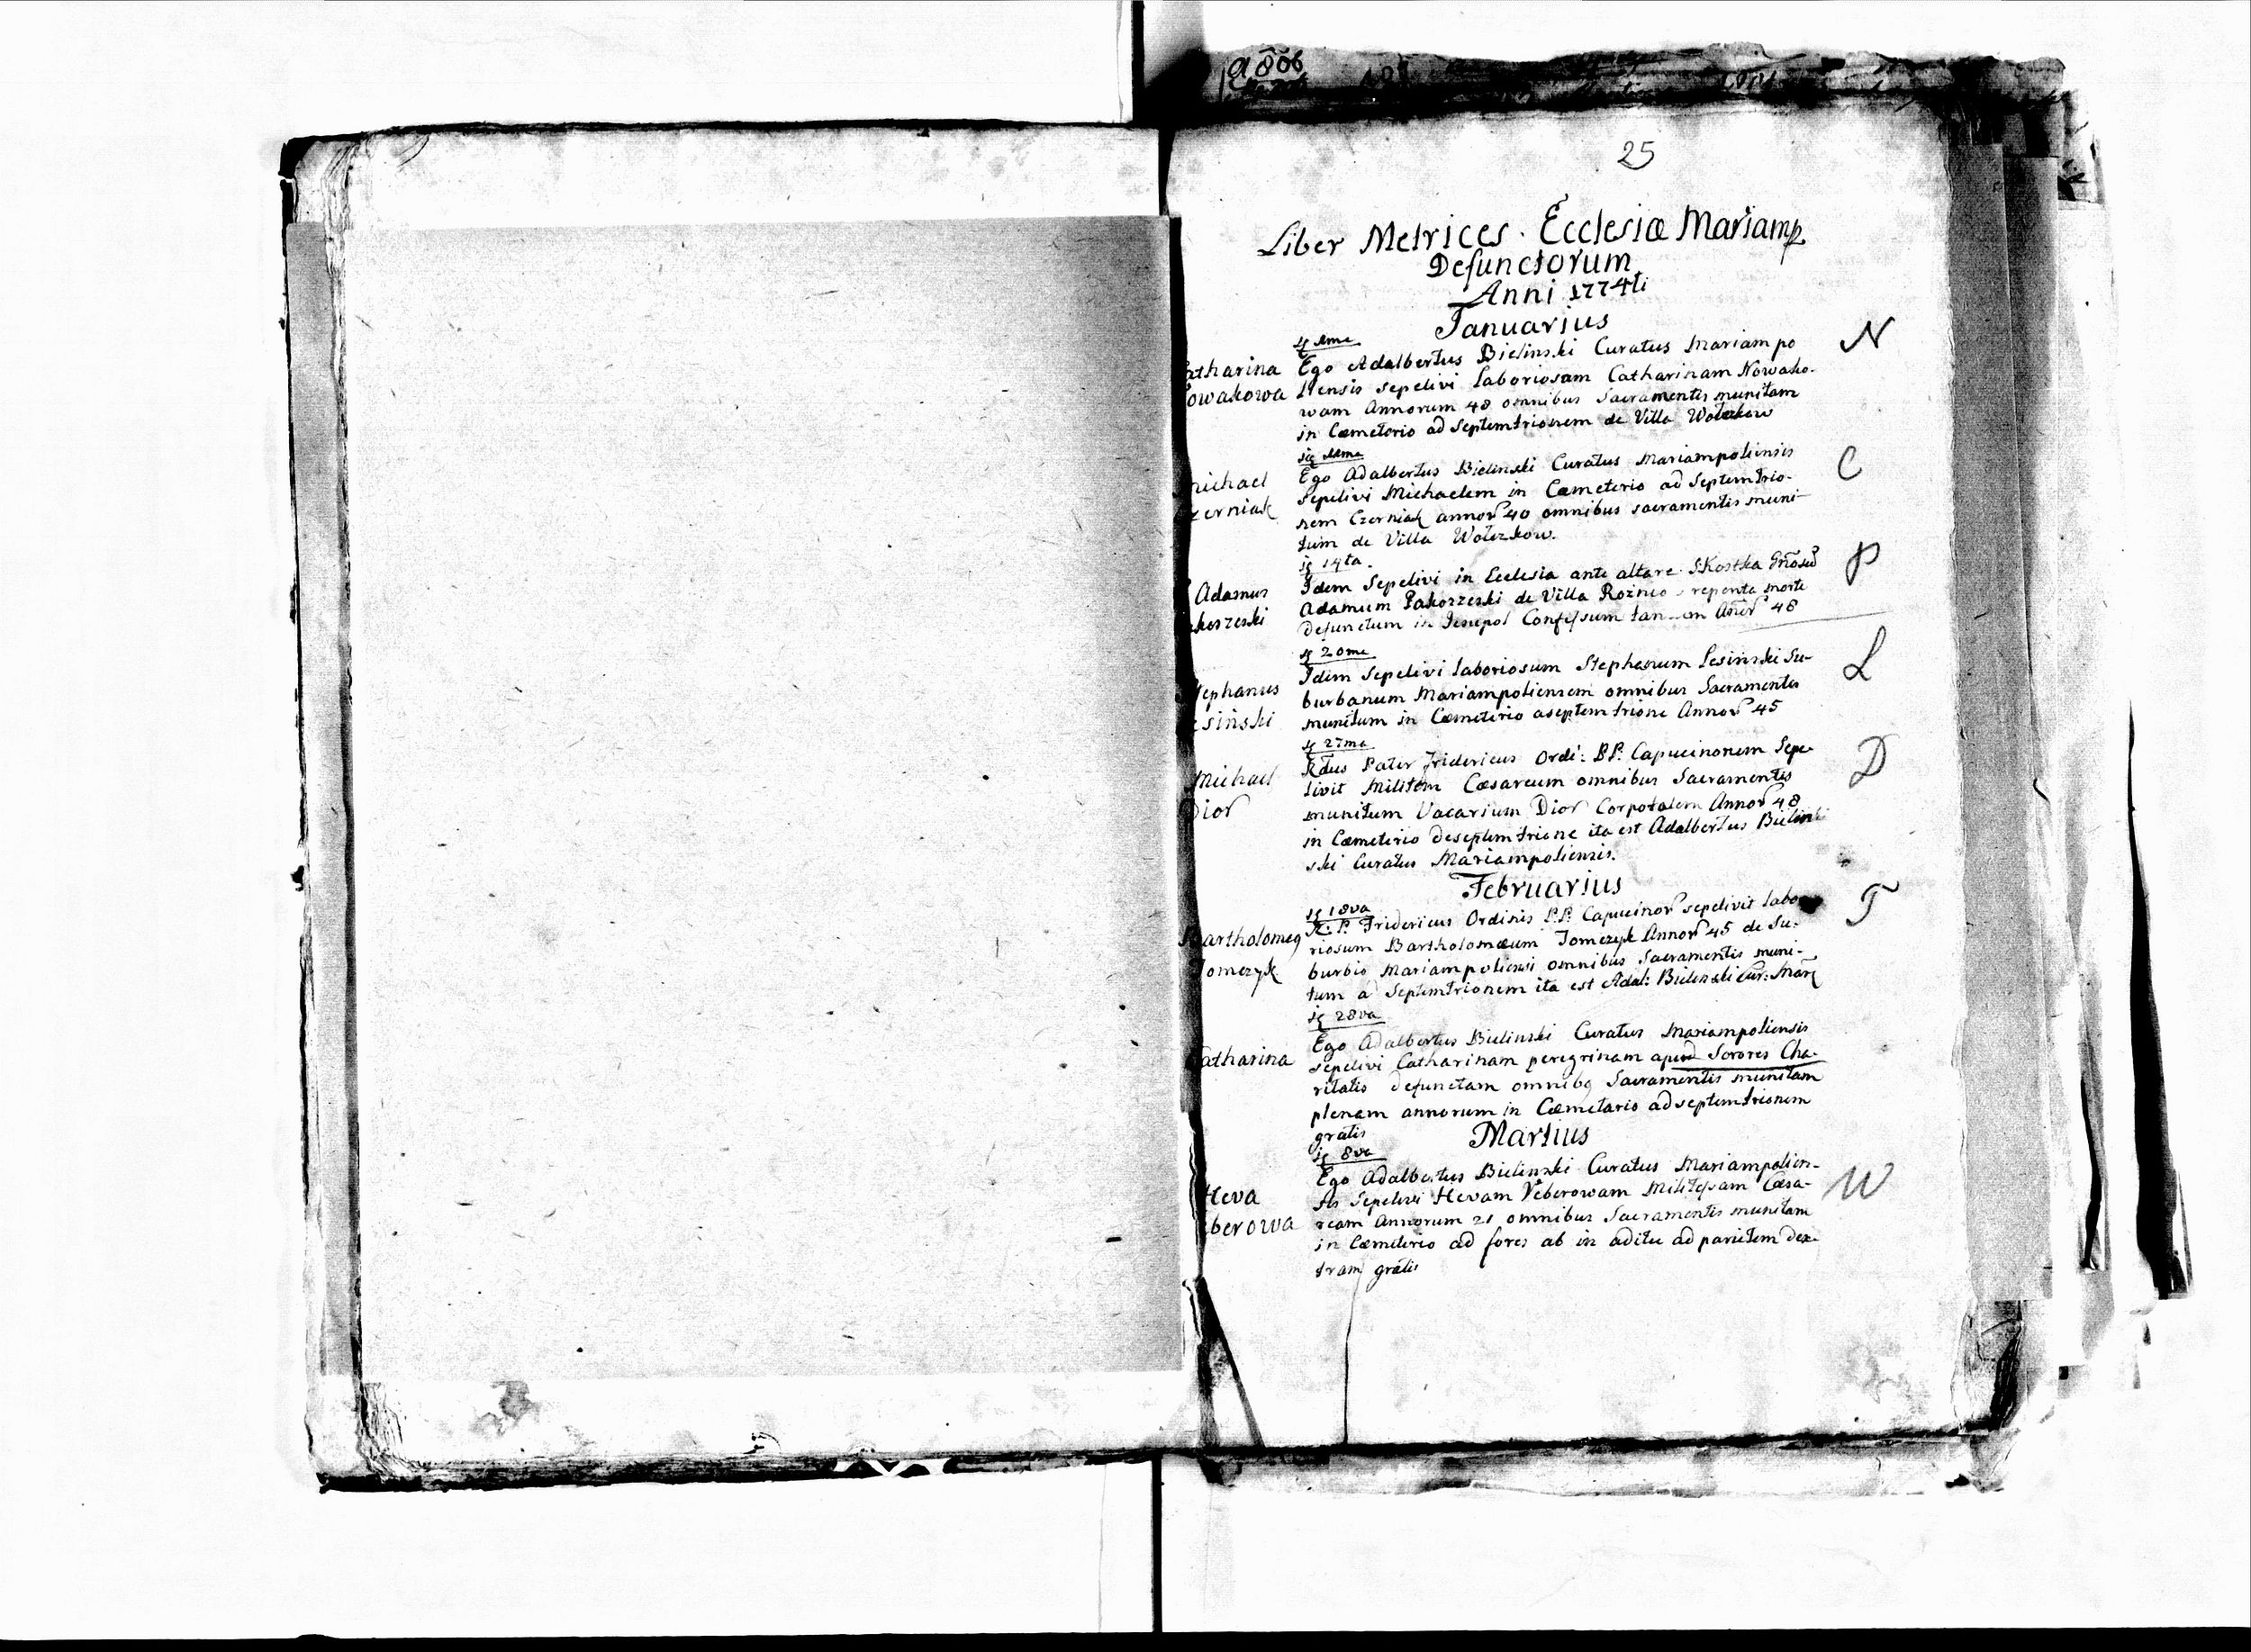 25
Liber Metrices Ecclesiæ Mariamp
Defunctorum
Anni 1774ti
Januarius
atharina
owakowa
Ego Adalbertus Bielinski Curatus Mariampo
liensis sepelivi Laboriosam Catharinam Nowako-
wam Annorum 48 omnibus Sacramentis munitam
in Cæmeterio ad Septemtrionem de Villa Wolczkow
N
michael
zerniak
Ego Adalbertus Bielinski Curatus Mariampoliensis
Sepelivi Michaelem in Cæmeterio ad Septemtrio-
nem Czerniak annor 40 omnibus sacramentis muni-
tum de Villa Wolczkow.
C
14ta.
Adamus
korzeski
Idem Sepelivi in Ecclesia ante altare S. Kostka
Adamum Pakorzeski de Villa repenta morte
defunctum in Jesupol Confessum Anor 48
P
20ma
tephanus
esinski
Idem Sepelivi laboriosum Stephanum Lesinski Su-
burbanum Mariampoliensem omnibus Sacramentis
munitum in Cæmeterio aseptemtrione Annor 45
L
27ma
Michael
Dior
Rdus Pater Fridericus Ordi: P.P. Capucinorum Sepe-
livit Militem Cæsareum omnibus Sacramentis
munitum Vacarium Dior Corporalem Annor 48
in Cæmeterio deseptemtrione ita est Adalbertus Bielin
ski Curatus Mariampoliensis.
D
Februarius
18va
Bartholomeq
Tomczyk
R. P. Fridericus Ordinis P.P. Capucinor sepelivit labo
riosum Bartholomæum Tomczyk Annor 45 de Su-
burbio Mariampoliensi omnibus Sacramentis muni-
tum a Septemtrionem ita est Adal: Bielinski Cur: Mar
T
28va
Catharina
Ego Adalbertus Bielinski Curatus Mariampoliensis
sepelivi Catharinam peregrinam apud Sorores Cha-
ritatis defunctam omnibq Sacramentis munitam
plenam annorum in Cæmetario adseptemtrionem
gratis
Martius
8va
Heva
berowa
Ego Adalbertus Bielinski Curatus Mariampolien-
sis Sepelivi Hevam Veberowam Militessam Cæsa-
ream Annorum 21 omnibus Sacramentis munitam
in Cæmeterio ad fores ab in aditu ad parietem dex-
tram gratis
W